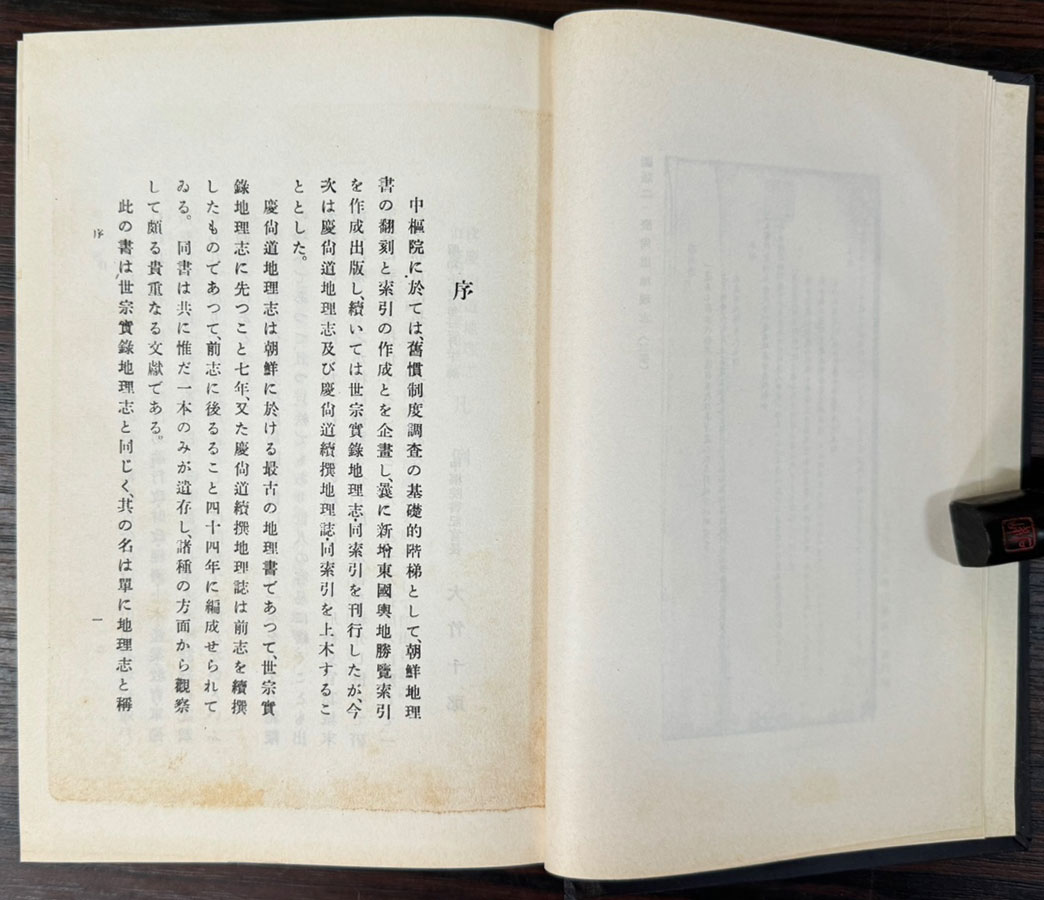 序
中樞院に於ては、舊慣制度調査の基礎的階梯として、朝鮮地理
書の翻刻と索引の作成とを企畫し、曩に新增東國輿地勝覽索引
を作成出版し、續いては世宗實錄地理志・同索引を刊行したが、今
次は慶尙道地理志及び慶尙道續撰地理誌・同索引を上木するこ
ととした。
慶尙道地理志は朝鮮に於ける最古の地理書であつて、世宗實
錄地理志に先つこと七年、又た慶尙道續撰地理誌は前志を續撰
したものであつて、前志に後るること四十四年に編成せられて
ゐる。同書は共に惟だ一本のみが遺存し、諸種の方面から觀察
して頗る貴重なる文獻である。
此の書は、世宗實錄地理志と同じく、其の名は單に地理志と稱
序
一